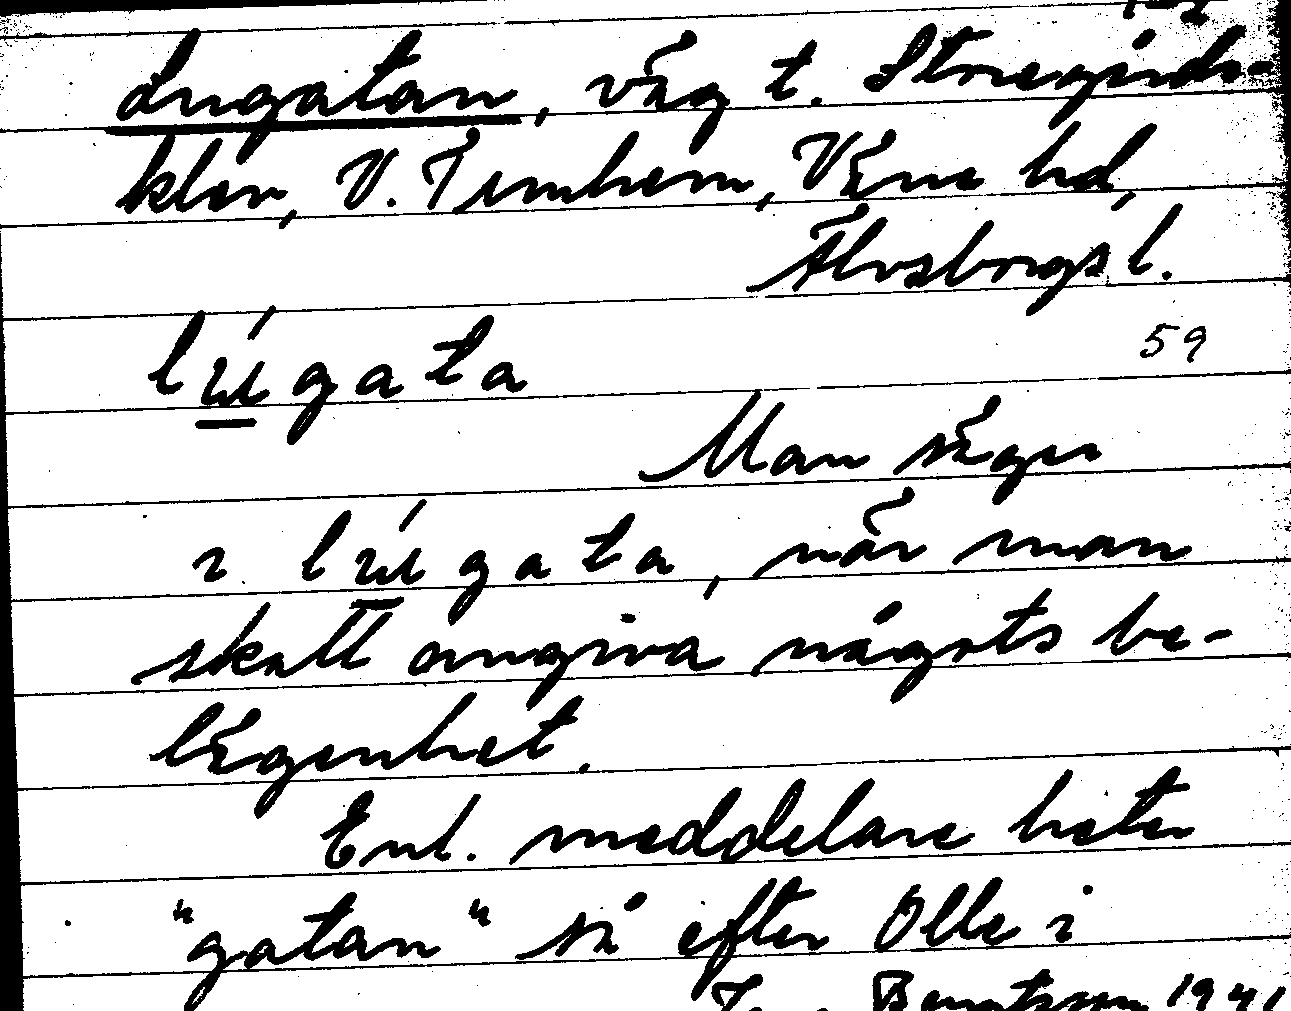 Lugatan, väg t. Storegårds-
klev, V. Tunhem, Väne hd,
Älvsborgs l.
lúgata
59
Man säger
i lúgata, när man
skall omgiva någots be-
lägenhet.
Enl. meddelare heter
"gatan" så efter Olle i
Bengtsson 1941